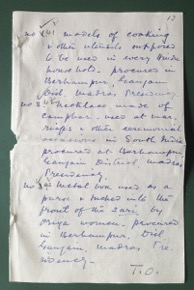 12
no 841 models of cooking
& other utensils supposed
to be used in every Hindu
household. procured in
Berhampur, Ganjam
Dist. Madras Presidency
necklace made of
camphor. used at mar-
riages & other ceremonial
occasions in South India
procured at Berhampur
Ganjam District, Madras
Presidency.
metal box used as a
purse & tucked into the
front of the sari by
Oriya women. procured
in Berhampur, Dist
Ganjam, Madras Pre-
sidency.
T.O.